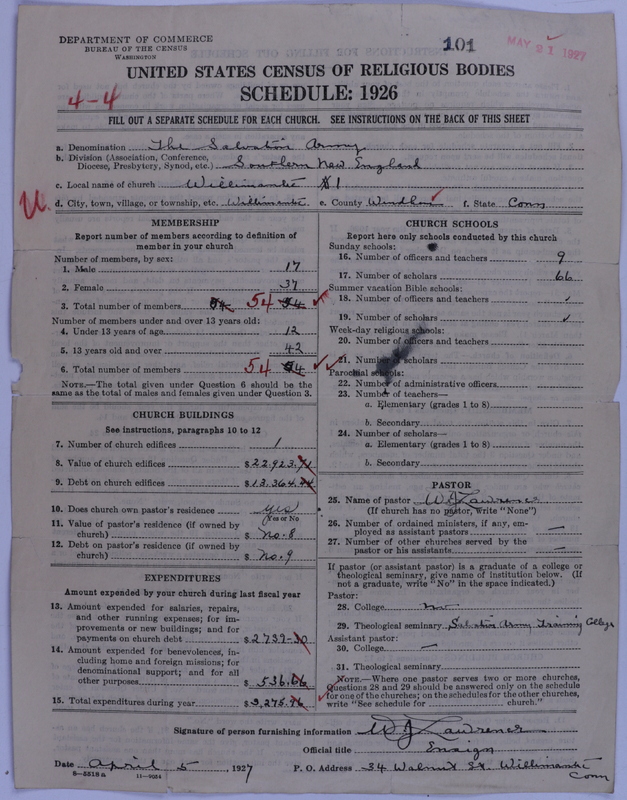 DEPARTMENT OF COMMERCE
BUREAU OF THE CENSUS
WASHINGTON
101
MAY 21 1927
UNITED STATES CENSUS OF RELIGIOUS BODIES
4-4
SCHEDULE: 1926
FILL OUT A SEPARATE SCHEDULE FOR EACH CHURCH. SEE INSTRUCTIONS ON THE BACK OF THIS SHEET
a. Denomination The Salvation Army
b. Division (Association, Conference,
Diocese, Presbytery, Synod, etc.) Southern New England
c. Local name of church Willimantic #1
U.
d. City, town, village, or township, etc. Willimantic e. County Windham f. State Conn
MEMBERSHIP
Report number of members according to definition of
member in your church
Number of members, by sex:
1. Male 17
2. Female 37
3. Total number of members 54 54 54
Number of members under and over 13 years old:
4. Under 13 years of age 12
5. 13 years old and over 42
6. Total number of members 54 54
NOTE.—The total given under Question 6 should be the
same as the total of males and females given under Question 3.
CHURCH BUILDINGS
See instructions, paragraphs 10 to 12
7. Number of church edifices 1
8. Value of church edifices $22,923.71
9. Debt on church edifices $13,364.44
10. Does church own pastor's residence yes
Yes or No
11. Value of pastor's residence (if owned by
church) $ No. 8
12. Debt on pastor's residence (if owned by
church) $ No. 9
EXPENDITURES
Amount expended by your church during last fiscal year
13. Amount expended for salaries, repairs,
and other running expenses; for im-
provements or new buildings; and for
payments on church debt $2739-30
14. Amount expended for benevolences, in-
cluding home and foreign missions; for
denominational support; and for all
other purposes $536.66
15. Total expenditures during year $3,275.96
CHURCH SCHOOLS
Report here only schools conducted by this church
Sunday schools:
16. Number of officers and teachers 9
17. Number of scholars 66
Summer vacation Bible schools:
18. Number of officers and teachers
19. Number of scholars
Week-day religious schools:
20. Number of officers and teachers
21. Number of scholars
Parochial schools:
22. Number of administrative officers
23. Number of teachers—
a. Elementary (grades 1 to 8)
b. Secondary
24. Number of scholars—
a. Elementary (grades 1 to 8)
b. Secondary
PASTOR
25. Name of pastor W J Lawrence
(If church has no pastor, write "None")
26. Number of ordained ministers, if any, em-
ployed as assistant pastors —
27. Number of other churches served by the
pastor or his assistants —
If pastor (or assistant pastor) is a graduate of a college or
theological seminary, give name of institution below. (If
not a graduate, write "No" in the space indicated.)
Pastor:
28. College no
29. Theological seminary Salvation Army Training College
Assistant pastor:
30. College —
31. Theological seminary
NOTE.—Where one pastor serves two or more churches,
Questions 28 and 29 should be answered only on the schedule
for one of the churches; on the schedules for the other churches,
write "See schedule for church."
Signature of person furnishing information W J Lawrence
Official title Ensign
Date April 5, 1927 P. O. Address 34 Walnut St. Willimantic
Conn
8-5518a 11-9054